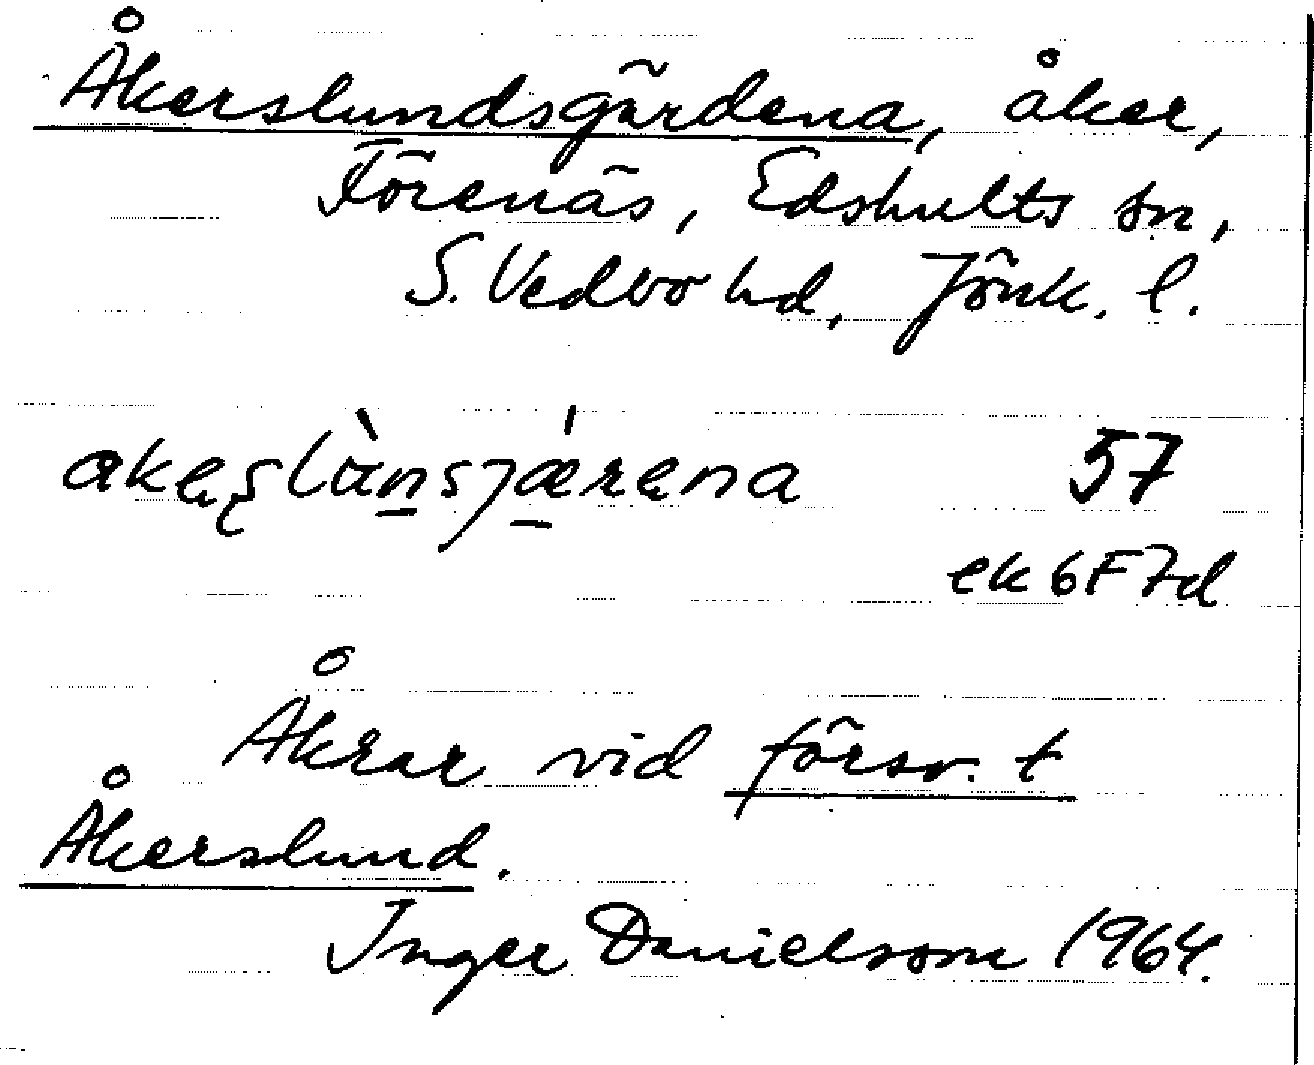 Åkerslundsgärdena, åker,
Förenäs, Edshults sn,
S. Vedbo hd, Jönk. l.
57
ek 6F7d
Åkrar vid försv. t
Åkerslund.
Inger Danielsson 1964.